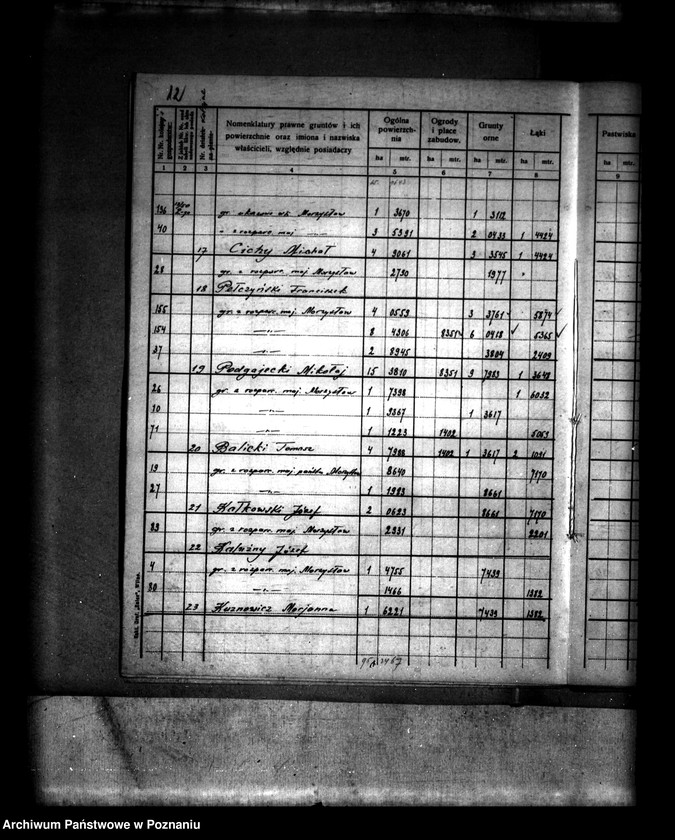 12
Nr. Nr. kolejny gospodarstw. Nr. działek Nomenklatury prawne gruntów i ich powierzchnie oraz imiona i nazwiska właścicieli, względnie posiadaczy Ogólna powierzchnia Ogrody i place zabudow. Grunty orne Łąki Pastwiska
ha mtr. ha mtr. ha mtr. ha mtr.
1 2 3 4 5 6 7 8 9
136 gr. okazow. wł. Morzysław 1 3670 1 3112
40 " z rozparc. maj 3 5391 2 0433 1 4424
17 Cichy Michał 4 9061 3 3545 1 4424
28 gr. z rozparc. maj Morzysław 2730 1977 "
18 Pałczyński Franciszek
155 gr. z rozparc. maj. Morzysław 4 0559 3 3761 5874
154 —"— 8 4306 8351 6 0418 5365
37 —"— 2 8945 3804 2409
19 Podgajecki Mikołaj 15 3810 8351 9 7983 1 3648
26 gr. z rozparc. maj Morzysław 1 7398 1 6032
10 —"— 1 3367 1 3617
71 —"— 1 1223 1402 5059
20 Balicki Tomasz 4 7988 1402 1 3617 2 1091
19 gr. z rozparc. maj. 8640 7170
27 —"— 1 1983 8661
21 Kałkowski Józef 2 0623 8661 7170
89 gr. z rozparc. maj Morzysław 2931 2201
22 Kałużny Józef
4 gr. z rozparc. maj. Morzysław 1 4755 7439
30 —"— 1466 1382
23 Kuznowicz Marjanna 1 6221 7439 1382
Archiwum Państwowe w Poznaniu